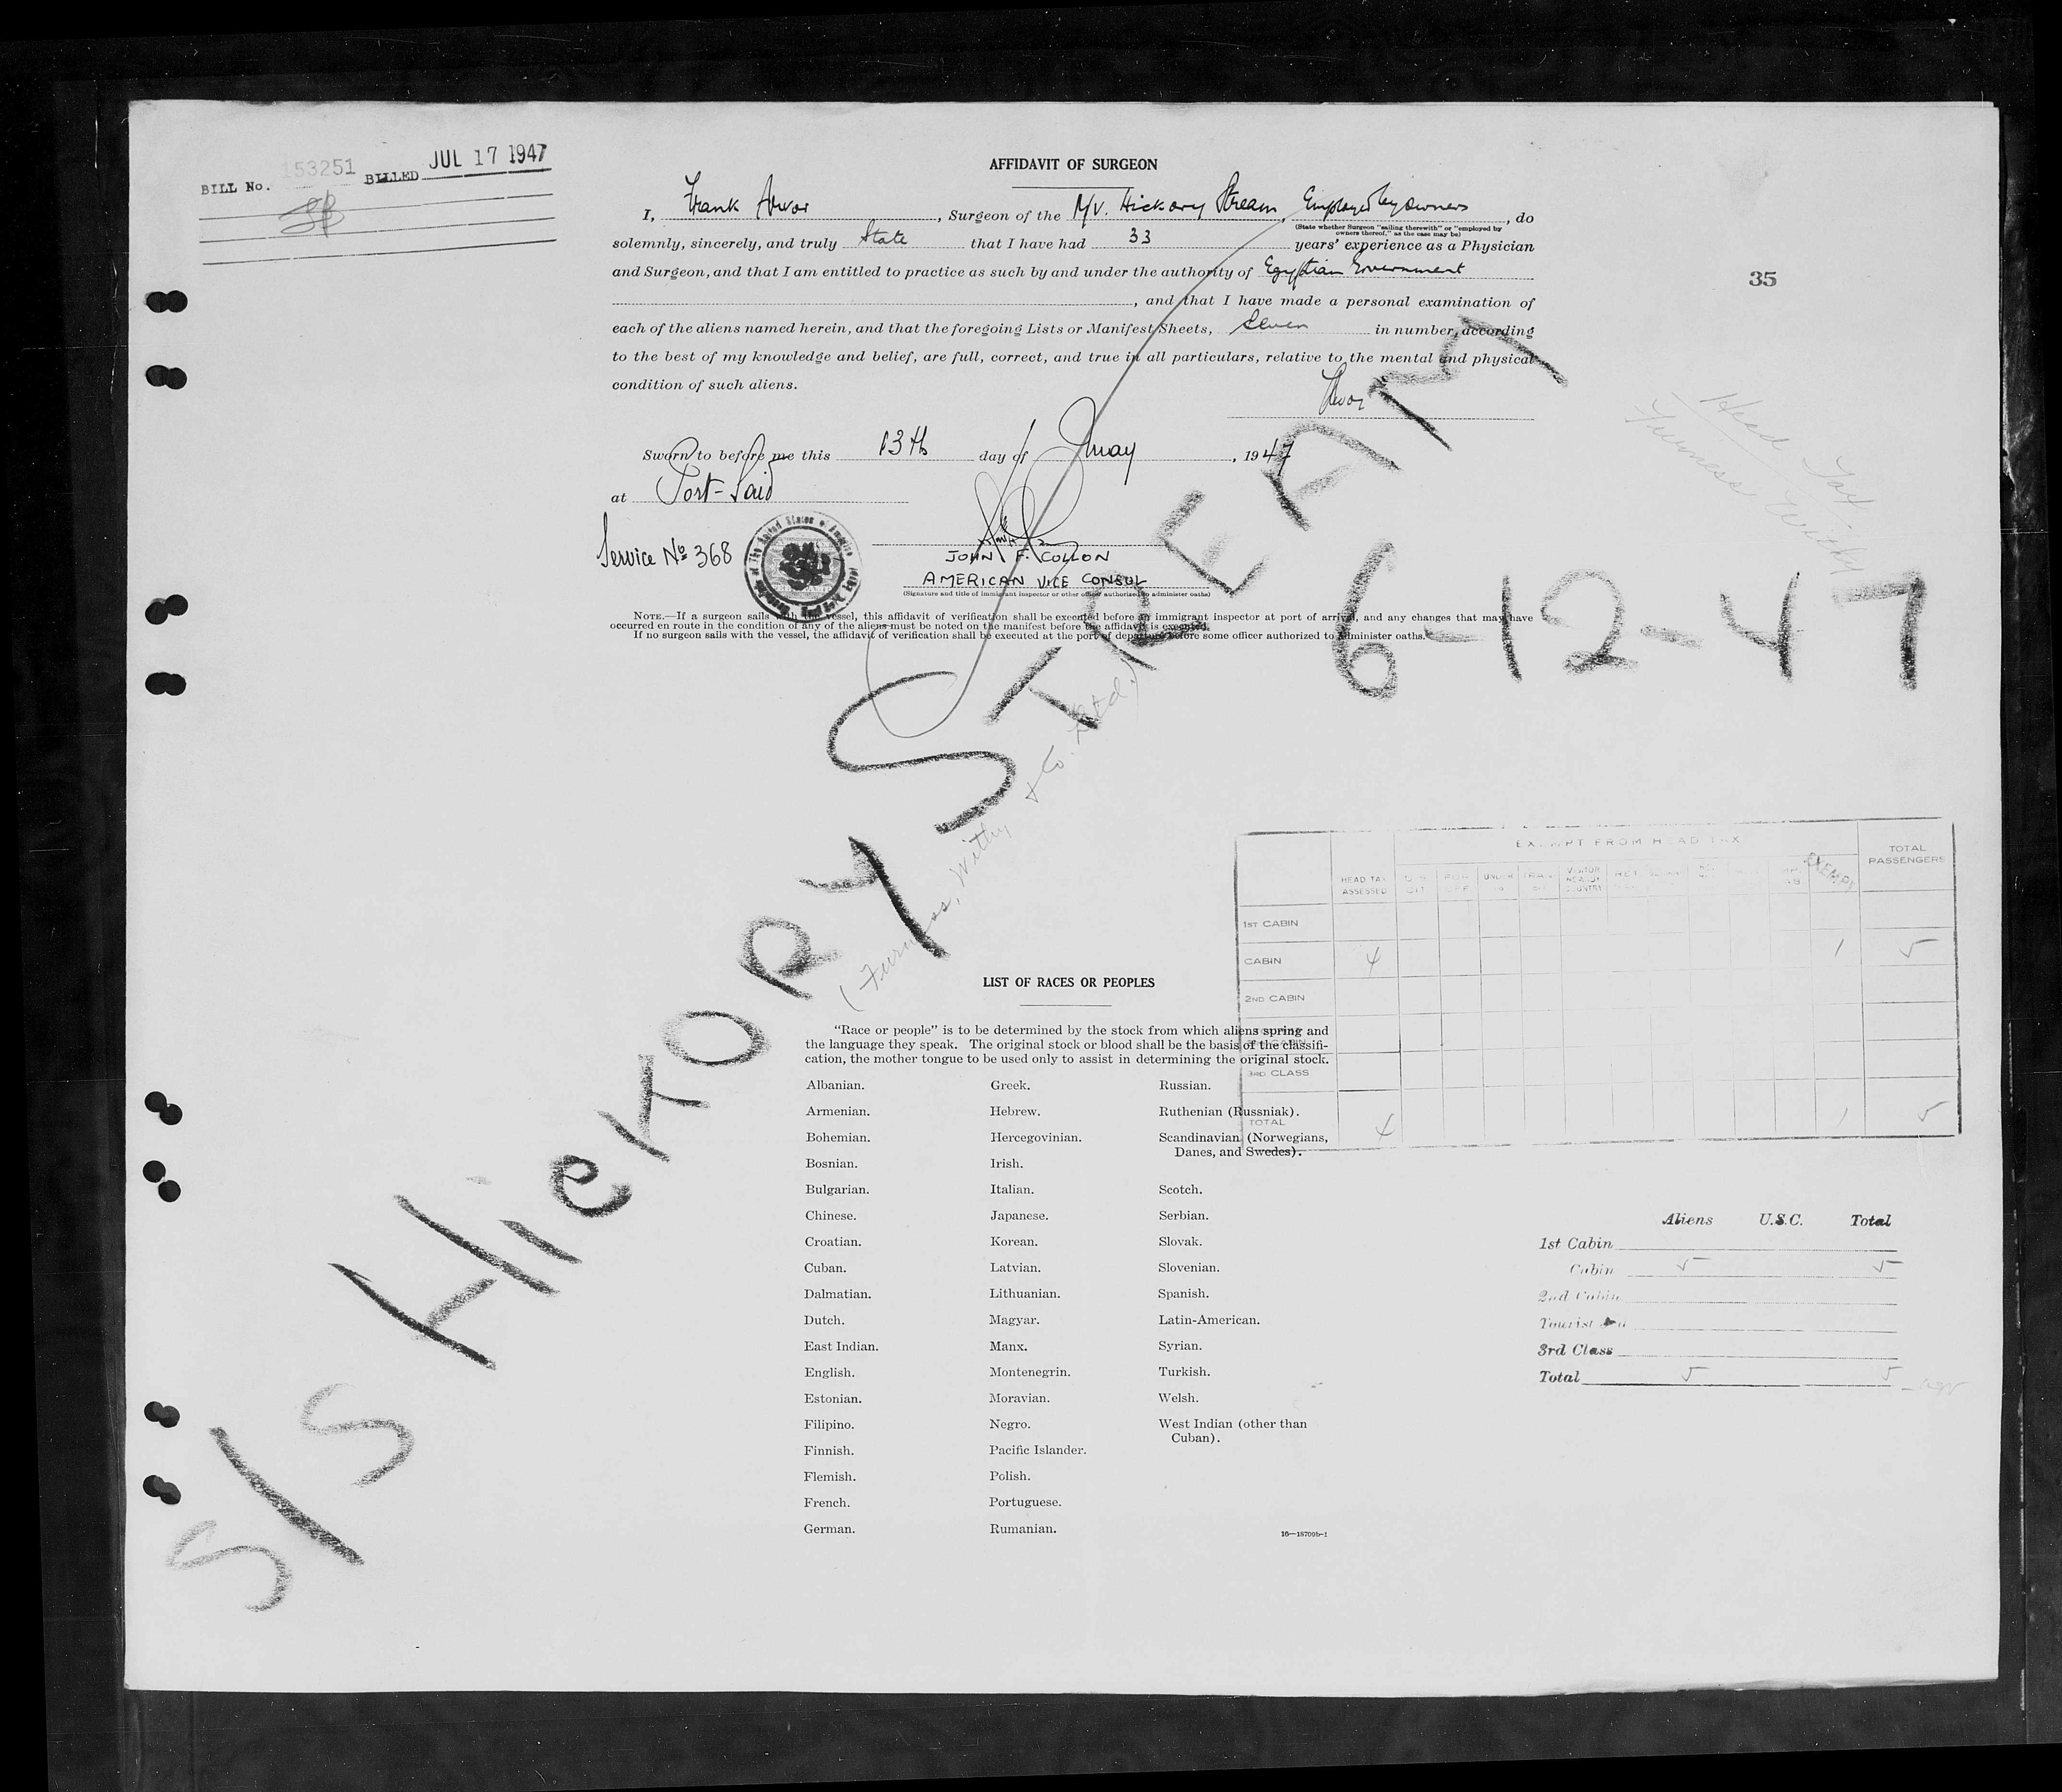 BILL No. 153251 BILLED JUL 17 1947
AFFIDAVIT OF SURGEON
I, Frank , Surgeon of the M/V. Hickory Stream, Employed by owners, do
(State whether Surgeon "sailing therewith" or "employed by
owners thereof," as the case may be)
solemnly, sincerely, and truly State that I have had 33 years' experience as a Physician
and Surgeon, and that I am entitled to practice as such by and under the authority of Egyptian Government
, and that I have made a personal examination of
35
each of the aliens named herein, and that the foregoing Lists or Manifest Sheets, in number, according
to the best of my knowledge and belief, are full, correct, and true in all particulars, relative to the mental and physical
condition of such aliens.
Head Tax
Furness Withy
Sworn to before me this 13th day of May, 1947
at Port-Said
Service No 368
JOHN F. COLLON
AMERICAN VICE CONSUL
(Signature and title of immigrant inspector or other officer authorized to administer oaths)
NOTE.—If a surgeon sails with the vessel, this affidavit of verification shall be executed before an immigrant inspector at port of arrival, and any changes that may have
occurred en route in the condition of any of the aliens must be noted on the manifest before the affidavit is executed.
If no surgeon sails with the vessel, the affidavit of verification shall be executed at the port of departure before some officer authorized to administer oaths.
6-12-47
S/S HICKORY STREAM
(Furness, Withy & Co. Ltd.)
EXEMPT FROM HEAD TAX
HEAD TAX ASSESSED U S CIT FOR OFF UNDER 16 TRAN VISITOR COUNTRY RET EXEMPT TOTAL PASSENGERS
1ST CABIN
CABIN 4 1 5
2ND CABIN
3RD CLASS
TOTAL 4 1 5
LIST OF RACES OR PEOPLES
"Race or people" is to be determined by the stock from which aliens spring and
the language they speak. The original stock or blood shall be the basis of the classifi-
cation, the mother tongue to be used only to assist in determining the original stock.
Albanian. Greek. Russian.
Armenian. Hebrew. Ruthenian (Russniak).
Bohemian. Hercegovinian. Scandinavian (Norwegians,
Danes, and Swedes).
Bosnian. Irish.
Bulgarian. Italian. Scotch.
Chinese. Japanese. Serbian.
Croatian. Korean. Slovak.
Cuban. Latvian. Slovenian.
Dalmatian. Lithuanian. Spanish.
Dutch. Magyar. Latin-American.
East Indian. Manx. Syrian.
English. Montenegrin. Turkish.
Estonian. Moravian. Welsh.
Filipino. Negro. West Indian (other than
Cuban).
Finnish. Pacific Islander.
Flemish. Polish.
French. Portuguese.
German. Rumanian.
16—18709b-1
Aliens U.S.C. Total
1st Cabin
Cabin 5 5
2nd Cabin
Tourist 3d
3rd Class
Total 5 5